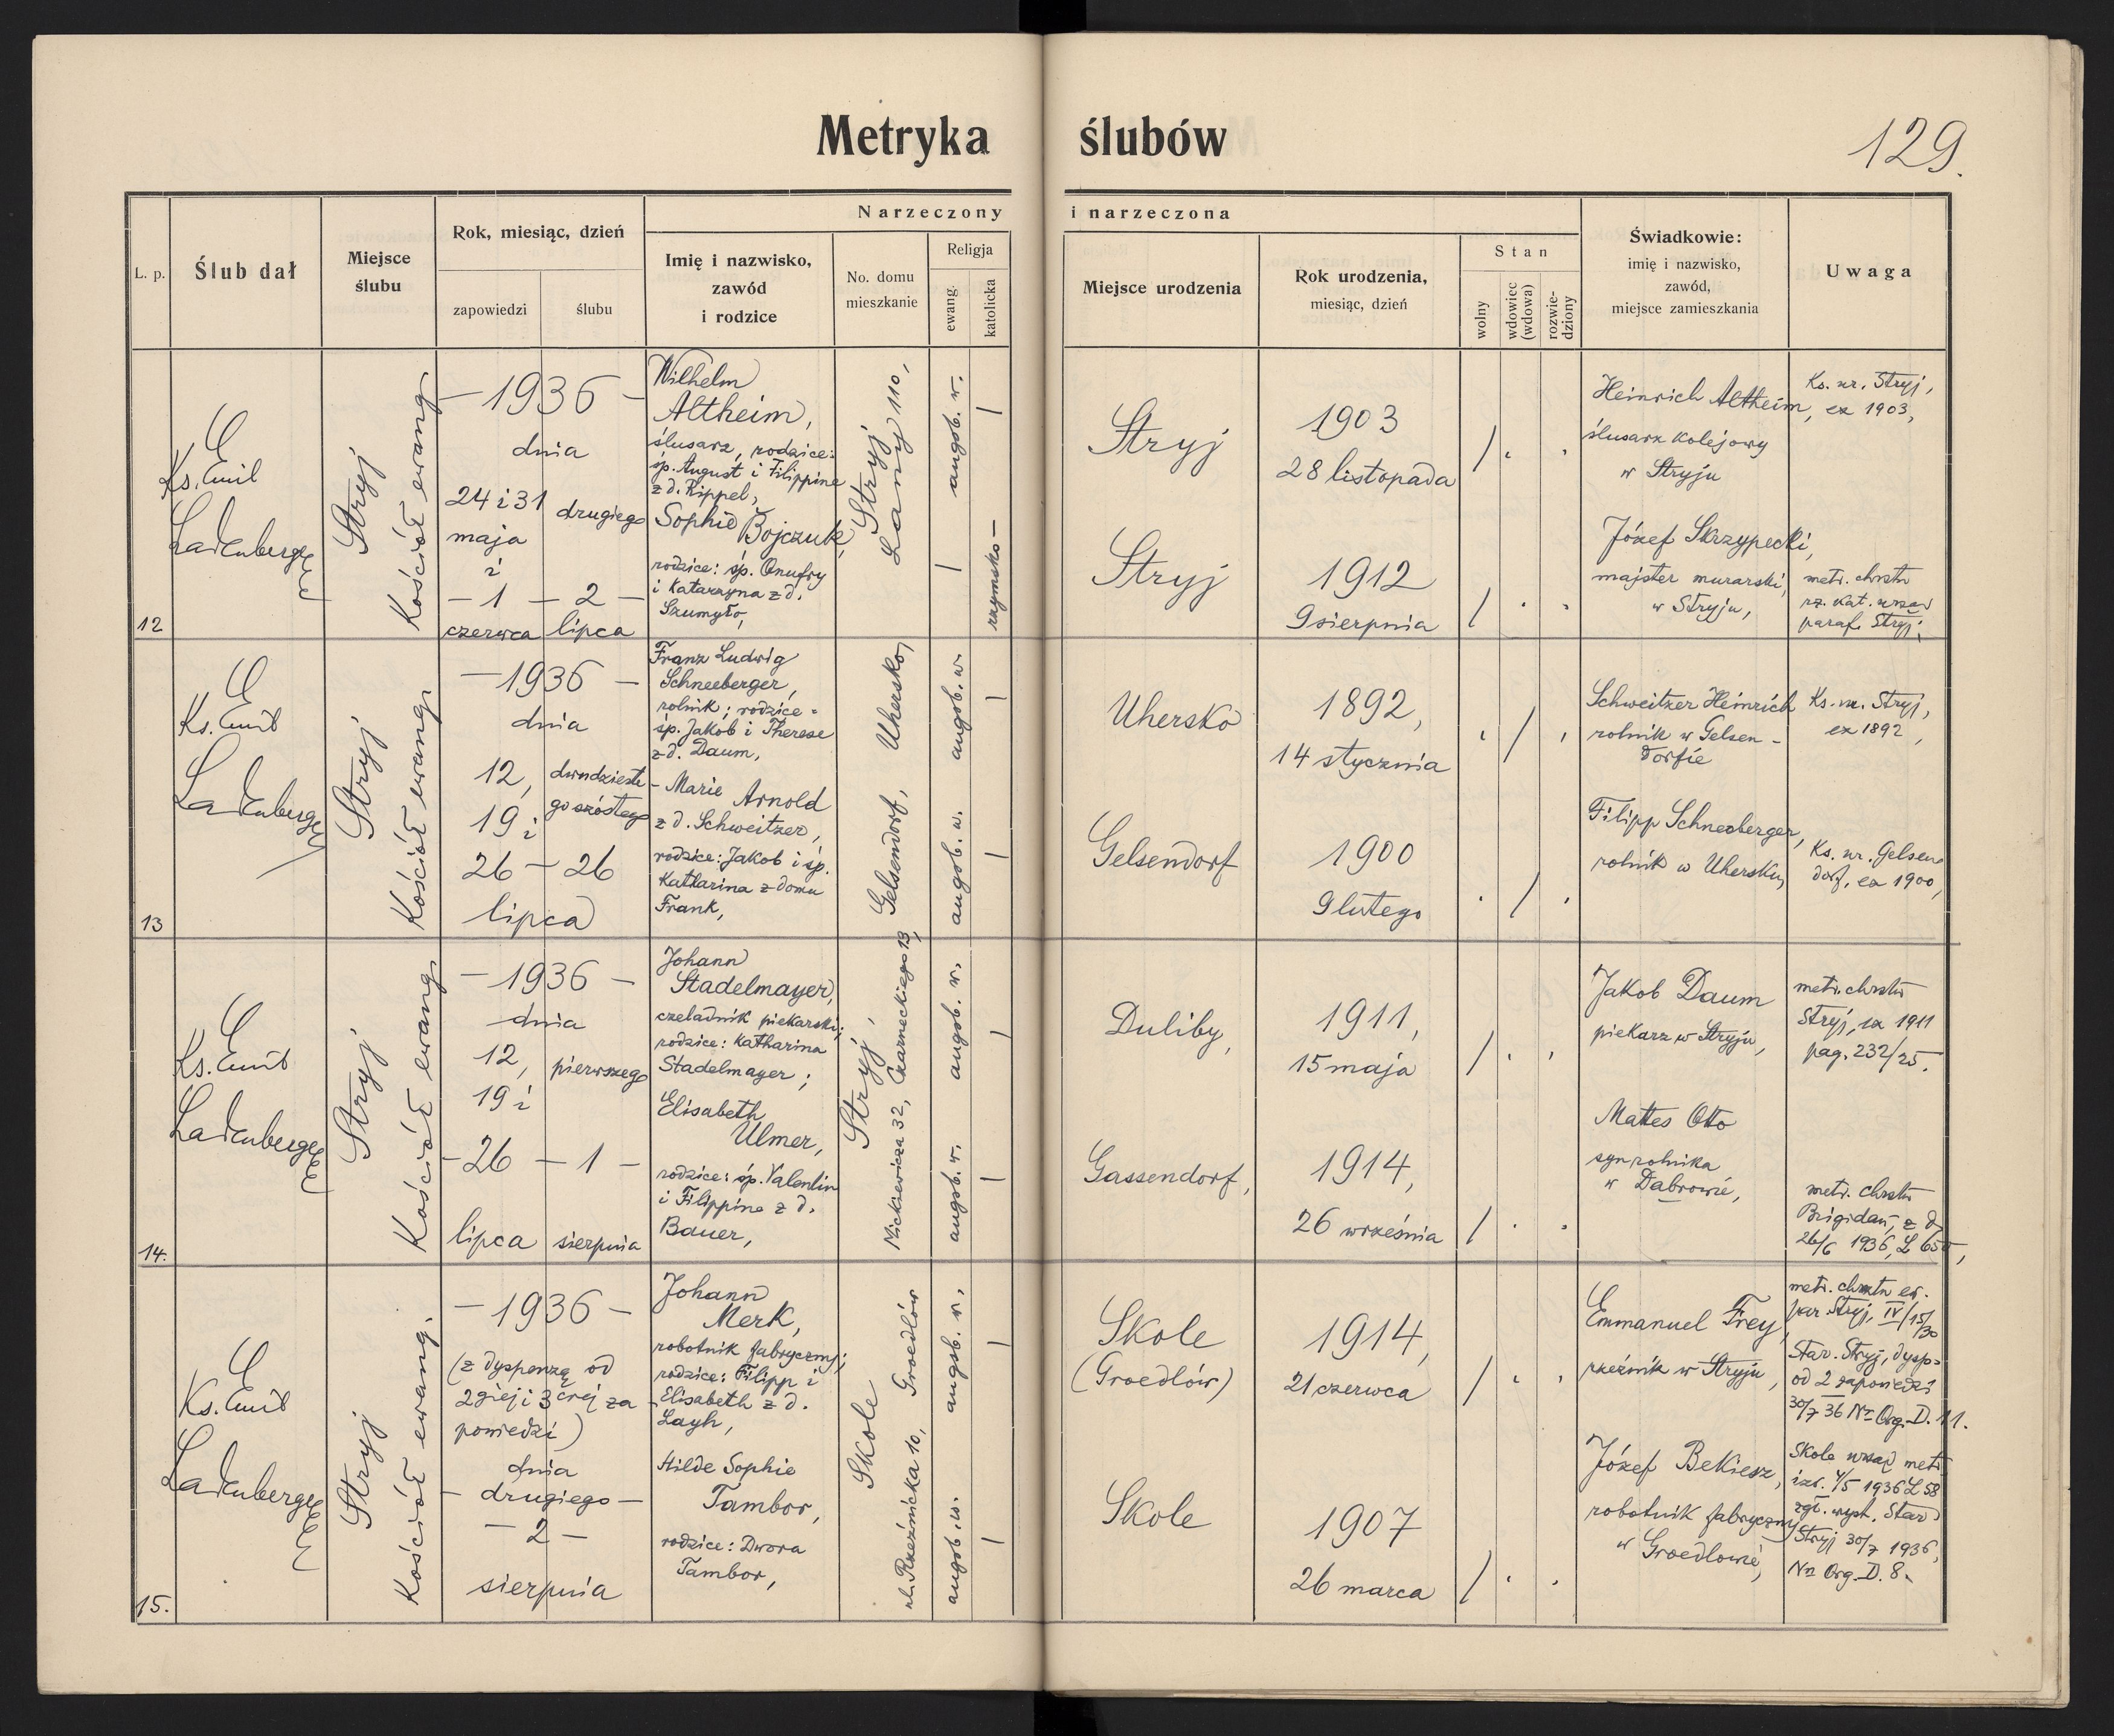 Metryka ślubów
129.
L. p.
Ślub dał
Miejsce
ślubu
Rok, miesiąc, dzień
zapowiedzi
ślubu
Narzeczony i narzeczona
Imię i nazwisko,
zawód
i rodzice
No. domu
mieszkanie
Religja
ewang.
katolicka
Miejsce urodzenia
Rok urodzenia,
miesiąc, dzień
Stan
wolny
wdowiec
(wdowa)
rozwie-
dziony
Świadkowie:
imię i nazwisko,
zawód,
miejsce zamieszkania
Uwaga
12
Ks. Emil
Ladenberger
Stryj
Kościół ewang.
– 1936 –
dnia
24 i 31
maja
i
– 1 –
czerwca
drugiego
2 –
lipca
Wilhelm
Altheim,
ślusarz, rodzice:
śp. August i Filippine
z d. Rippel,
Sophie Bojczuk,
rodzice: śp. Onufry
i Katarzyna z d.
Szumyło,
Stryj
Łany 110,
augsb. w.
/
/
rzymsko –
Stryj
1903
28 listopada
/ . .
Stryj
1912
9 sierpnia
/ . .
Heinrich Altheim,
ślusarz kolejowy
w Stryju
Józef Skrzypecki,
majster murarski,
w Stryju,
Ks. ur. Stryj,
ex 1903,
metr. chrztu
rz. kat. urząd
paraf. Stryj.
13
Ks. Emil
Ladenberger
Stryj
Kościół ewang.
– 1936 –
dnia
12,
19 i
26 – 26
lipca
dwudzieste
go szóstego
Franz Ludwig
Schneeberger,
rolnik; rodzice =
śp. Jakob i Therese
z d. Daum,
– Marie Arnold
z d. Schweitzer,
rodzice: Jakob i śp.
Katharina z domu
Frank,
Uhersko,
Gelsendorf,
augsb. w.
/
augsb. w.
/
Uhersko
1892,
14 stycznia
. / .
Gelsendorf
1900
9 lutego
. / .
Schweitzer Heinrich
rolnik w Gelsen -
dorfie
Filipp Schneeberger,
rolnik w Uhersku,
Ks. ur. Stryj,
ex 1892,
Ks. ur. Gelsen
dorf, ex 1900,
14.
Ks. Emil
Ladenberger
Stryj
Kościół ewang.
– 1936 –
dnia
12,
19 i
– 26 – 1 –
lipca
pierwszego
sierpnia
Johann
Stadelmayer,
czeladnik piekarski;
rodzice: Katharina
Stadelmayer;
Elisabeth
Ulmer,
rodzice: śp. Valentin
i Filippine z d.
Bauer,
Stryj,
Mickiewicza 32, Czarneckiego 13,
augsb. w.
/
augsb. w.
/
Duliby,
1911,
15 maja
/ . .
Gassendorf,
1914,
26 września
/ . .
Jakob Daum
piekarz w Stryju,
Mattes Otto
syn rolnika
w Dąbrowie,
metr. chrztu
Stryj, ex 1911
pag. 232/25.
metr. chrztu
Brigidau, z d.
26/6 1936,
15.
Ks. Emil
Ladenberger
Stryj
Kościół ewang.
– 1936 –
(z dyspenzą od
2giej i 3ciej za
powiedzi)
dnia
– drugiego –
– 2 –
sierpnia
Johann
Merk,
robotnik fabryczny;
rodzice: Filipp i
Elisabeth z d.
Layh,
Hilde Sophie
Tambor,
rodzice: Dwora
Tambor,
Skole
ul. Rzeźnicka 10, Groedlów
augsb. w.
/
augsb. w.
/
Skole
(Groedlów)
1914,
21 czerwca
/ . .
Skole
1907
26 marca
/ . .
Emmanuel Frey,
rzeźnik w Stryju,
Józef Bekiesz,
robotnik fabryczny
w Groedlowie,
metr. chrztu ew.
par. Stryj, IV/15/30
Star. Stryj, dysp=
od 2 zapowiedzi
30/7 36 Nr Org. D. 11.
Skole urząd metr.
izr. 4/5 1936 L 58
zgł. wyst. Star.
Stryj 30/7 1936,
Nr Org. D. 8.